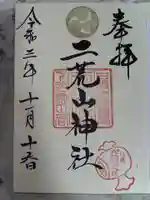 奉拝
二荒山神社
令和二年十一月十六日